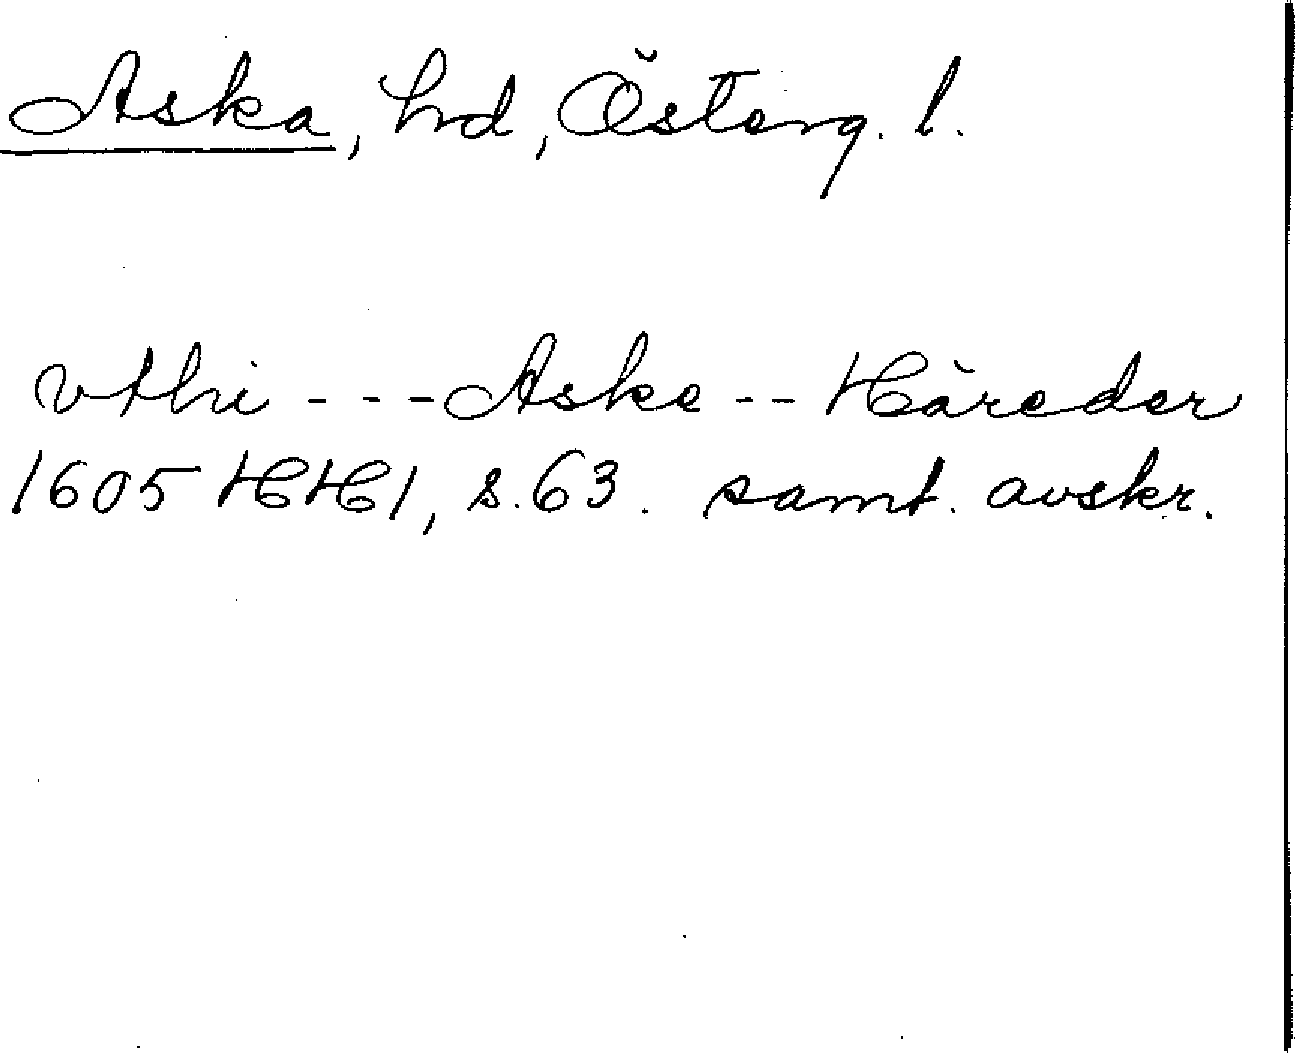 Aska, hd, Österg. l.
vthi --- Aske -- Häreder
1605 HH1, s. 63. samt. avskr.